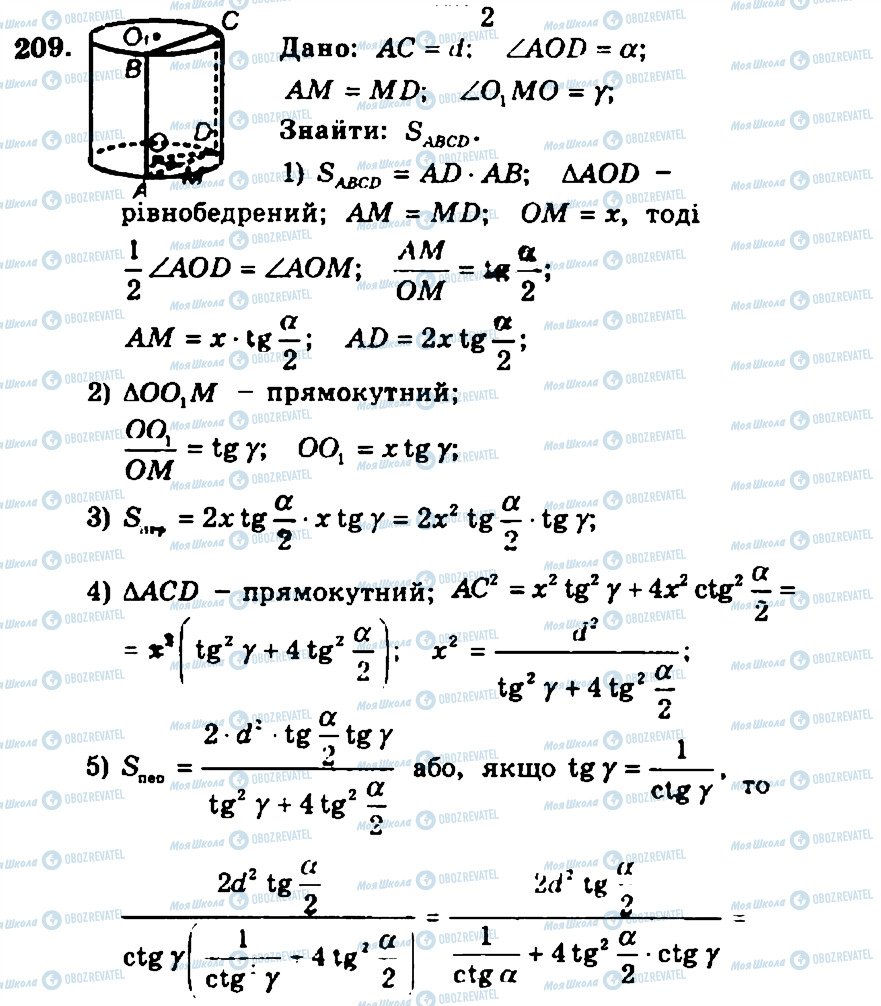 2
209. Дано: AC = d; ∠AOD = α;
O₁ C B O D A M
AM = MD; ∠O₁MO = γ;
Знайти: S_ABCD.
1) S_ABCD = AD · AB; ΔAOD –
рівнобедрений; AM = MD; OM = x, тоді
1/2 ∠AOD = ∠AOM; AM/OM = tg α/2;
AM = x · tg α/2; AD = 2x tg α/2;
2) ΔOO₁M – прямокутний;
OO₁/OM = tg γ; OO₁ = x tg γ;
3) S = 2x tg α/2 · x tg γ = 2x² tg α/2 · tg γ;
4) ΔACD – прямокутний; AC² = x² tg² γ + 4x² ctg² α/2 =
= x² ( tg² γ + 4 tg² α/2 ); x² = d²/(tg² γ + 4 tg² α/2);
5) S_пер = (2 · d² · tg α/2 tg γ)/(tg² γ + 4 tg² α/2) або, якщо tg γ = 1/ctg γ, то
(2d² tg α/2)/(ctg γ (1/ctg² γ + 4 tg² α/2)) = (2d² tg α/2)/(1/ctg α + 4 tg² α/2 · ctg γ) =
Моя Школа OBOZREVATEL